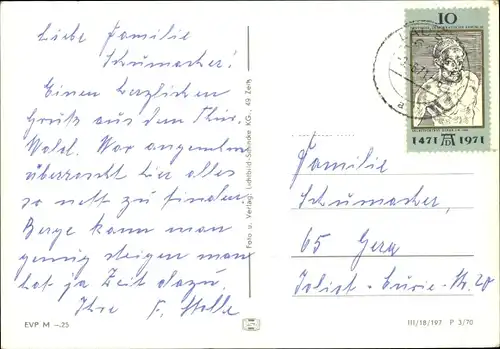 Liebe Familie
Schumacher!
Einen herzlichen
Gruß aus dem Thür.
Wald. War angenehm
überrascht hier alles
so nett zu finden.
Berge kann man
genug steigen man
hat ja Zeit dazu.
Ihre F. Stolle
EVP M –,25
Foto u. Verlag: Lichtbild-Schincke KG., 49 Zeitz
10
1471 1971
Familie
Schumacher,
65 Gera
Joliot-Curie-Str. 20
III/18/197 P 3/70